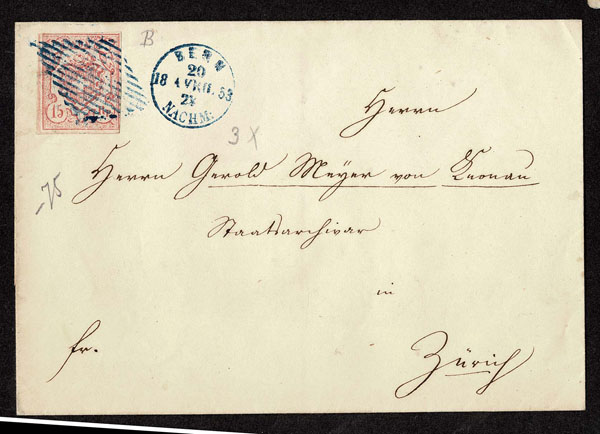 15
B
BERN
20
18 AVRIL 53
2½
NACHM:
3 X
Herrn
Herrn Gerold Meyer von Knonau
-75
Staatsarchivar
in
fr.
Zürich